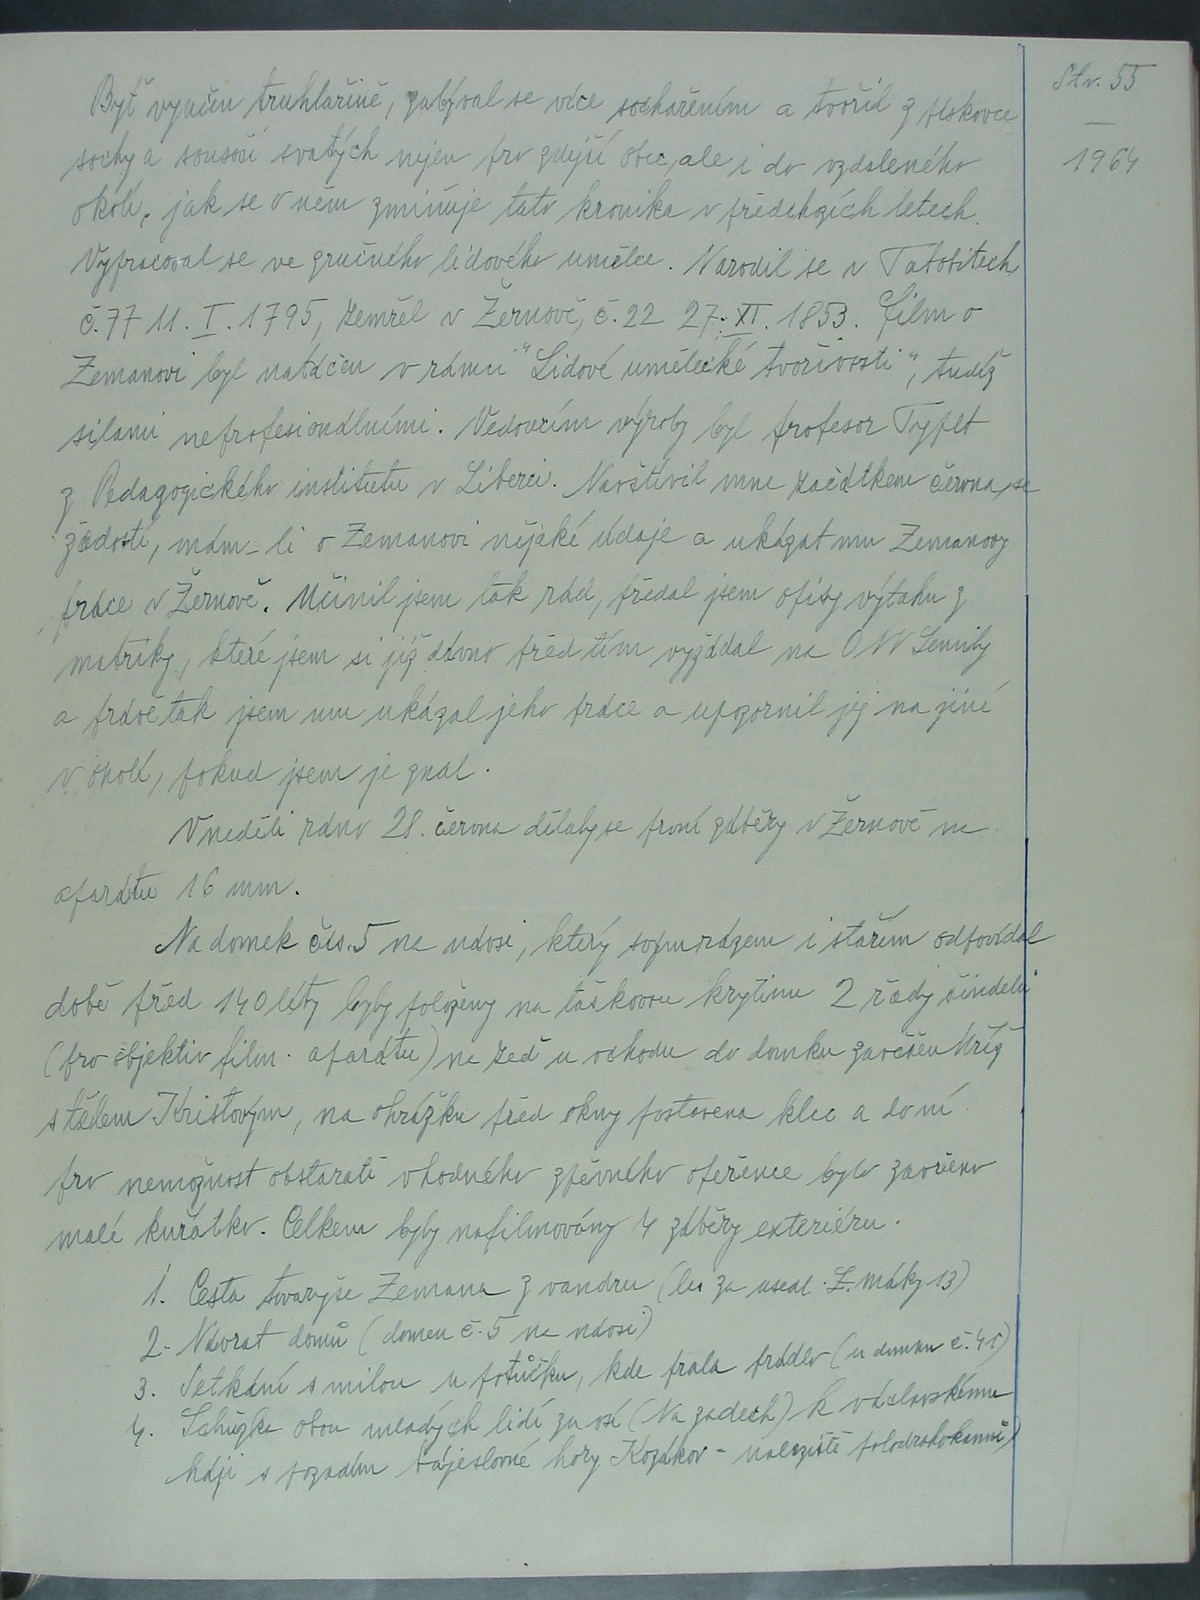 Str. 55
1964
Byť vyučen truhlařině, zabýval se více sochařením a tvořil z pískovce
sochy a sousoší svatých nejen pro zdejší obec, ale i do vzdáleného
okolí, jak se o něm zmiňuje tato kronika v předchozích letech.
Vypracoval se ve zručného lidového umělce. Narodil se v Tatobitech
č. 77 11. I. 1795, zemřel v Žernově, č. 22 27. XI. 1853. Film o
Zemanovi byl natáčen v rámci "Lidové umělecké tvořivosti", tudíž
silami neprofesionálními. Vedoucím výroby byl profesor Tyflt
z Pedagogického institutu v Liberci. Navštívil mne začátkem června, se
žádostí, mám-li o Zemanovi nějaké údaje a ukázat mu Zemanovy
práce v Žernově. Učinil jsem tak rád, předal jsem opisy výtahu z
matriky, které jsem si již dávno před tím vyžádal na ONV Semily
a právě tak jsem mu ukázal jeho práce a upozornil jej na jiné
v okolí, pokud jsem je znal.
V neděli ráno 28. června dělaly se první záběry v Žernově na
aparátu 16 mm.
Na domek čís. 5 na návsi, který svým rázem i stářím odpovídal
době před 140 léty byly položeny na taškovou krytinu 2 řady šindelů
(pro objektiv film. aparátu) na zeď u vchodu do domku zavěšen kříž
s tělem Kristovým, na ohrázku před okny postavena klec a do ní
pro nemožnost obstarati vhodného zpěvného opeřence bylo zavřeno
malé kuřátko. Celkem byly nafilmovány 4 záběry exteriéru.
1. Cesta tovaryše Zemana z vandru (les za used. L. Máky 13)
2. Návrat domů (domek č. 5 na návsi)
3. Setkání s milou u potůčku, kde prala prádlo (u domku č. 45)
4. Schůzka obou mladých lidí za vsí (Na zadech) k václavskému
háji s pozadím bájeslovné hory Kozákov - naleziště polodrahokamů)